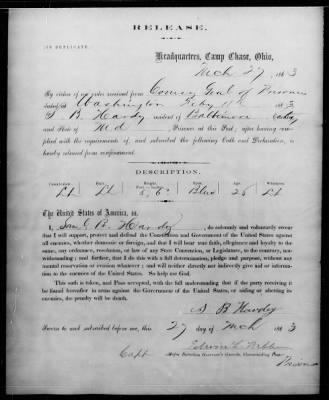 RELEASE.
[IN DUPLICATE.]
Headquarters, Camp Chase, Ohio,
Mch 27, 1863
By virtue of an order received from Comery Genl of Prisoners
dated at Washington Feby 1863
S. B. Hardy resident of Baltimore County
and State of Md, Prisoner at this Post; after having com-
plied with the requirements of, and subscribed the following Oath and Declaration, is
hereby released from confinement.
DESCRIPTION.
Complexion. Hair. Height. Eyes. Age. Whiskers.
Lt Lt 5, 6 Blue 26 Lt
The United States of America, ss.
I, Saml B. Hardy, do solemnly and voluntarily swear
that I will support, protect and defend the Constitution and Government of the United States against
all enemies, whether domestic or foreign, and that I will bear true faith, allegiance and loyalty to the
same, any ordinance, resolution, or law of any State Convention, or Legislature, to the contrary, not-
withstanding; and further, that I do this with a full determination, pledge and purpose, without any
mental reservation or evasion whatever; and will neither directly nor indirectly give aid or informa-
tion to the enemies of the United States. So help me God.
This oath is taken, and Pass accepted, with the full understanding that if the party receiving it
be found hereafter in arms against the Government of the United States, or aiding or abetting its
enemies, the penalty will be death.
S B Hardy
Sworn to and subscribed before me, this 27 day of Mch 1863
Edwin L. Webber
Capt Major Battalion Governor's Guards, Commanding Post
Prison